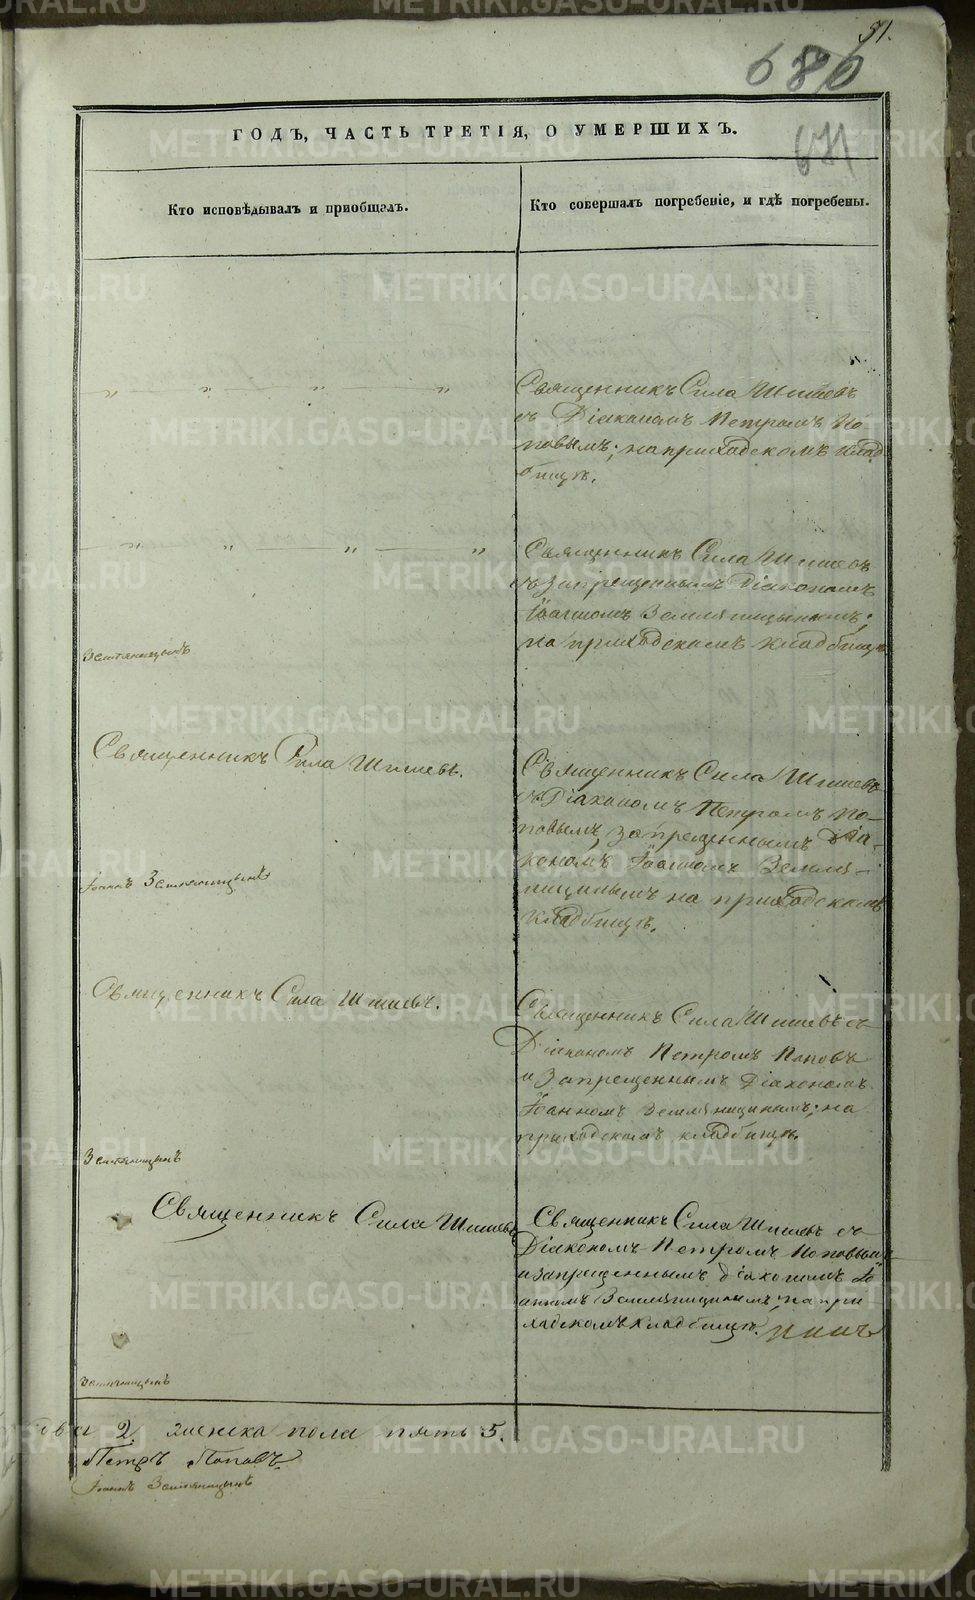 51.
686
671
ГОДЪ, ЧАСТЬ ТРЕТІЯ, О УМЕРШИХЪ.
Кто исповѣдывалъ и приобщалъ.
Кто совершалъ погребеніе, и гдѣ погребены.
Священникъ Сила Шишевъ
съ Діакономъ Петромъ По-
повымъ; на приходскомъ клад-
бищѣ.
Священникъ Сила Шишевъ
съ запрещеннымъ Діакономъ
Іоанномъ Земляницынымъ;
на приходскомъ кладбищѣ
Земляницынъ
Священникъ Сила Шишевъ.
Іоаннъ Земляницынъ
Священникъ Сила Шишевъ
съ Діакономъ Петромъ По-
повымъ, запрещеннымъ Діа-
кономъ Іоанномъ Земля-
ницинымъ на приходскомъ
кладбищѣ.
Священникъ Сила Шишевъ.
Земляницынъ
Священникъ Сила Шишевъ съ
Діакономъ Петромъ Поповъ
и Запрещеннымъ Діакономъ
Іоанномъ Земляницинымъ; на
приходскомъ кладбищѣ.
Священникъ Сила Шишевъ
Земляницынъ
Священникъ Сила Шишевъ съ
Діакономъ Петромъ Поповым
и запрещеннымъ діакономъ Іо-
анномъ Земляницинымъ; на при-
ходскомъ кладбищѣ.
два 2. женска пола пять 5.
Петръ Поповъ.
Іоаннъ Земляницынъ
METRIKI.GASO-URAL.RU